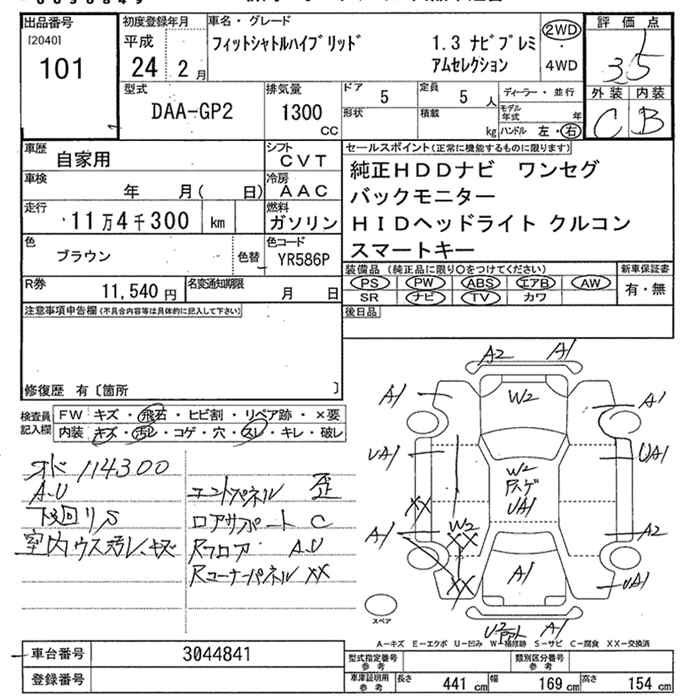 出品番号
[2040]
101
初度登録年月
平成
24 2 月
車名・グレード
フィットシャトルハイブリッド
1.3 ナビプレミアムセレクション
2WD
・
4WD
評価点
3.5
外装 内装
C B
型式
DAA-GP2
排気量
1300
cc
ドア 5
定員 5 人
形状
積載 kg
ディーラー・並行
モデル年式 年
ハンドル 左・右
車歴
自家用
シフト
CVT
車検
年 月( 日)
冷房
AAC
走行
11万4千300 km
燃料
ガソリン
色
ブラウン
色替
色コード
YR586P
R券
11,540 円
名変通知期限
月 日
セールスポイント(正常に機能するものに限ります)
純正HDDナビ ワンセグ
バックモニター
HIDヘッドライト クルコン
スマートキー
装備品 (純正品に限り○をつけてください)
PS PW ABS エアB AW
SR ナビ TV カワ
新車保証書
有・無
後日品
注意事項申告欄(不具合内容等は具体的に記入して下さい)
修復歴 有〔箇所 〕
検査員記入欄
FW キズ・飛石・ヒビ割・リペア跡・×要
内装 キズ・汚レ・コゲ・穴・スレ・キレ・破レ
114300
A.U
下廻りS
室内ウス汚レ、キズ
エンドパネル 歪
ロアサポート C
Rフロア A.U
Rコーナーパネル XX
A2 A1
A1 W2 A1
UA1 W2 UA1
UA1
XX W2
A1 XX A2
XX A1 UA1
U2 A1
スペア
A-キズ E-エクボ U-凹み W-補修跡 S-サビ C-腐食 XX-交換済
車台番号 3044841
登録番号
型式指定番号 参考
類別区分番号 参考
車庫証明用 参考
長さ 441 cm 幅 169 cm 高さ 154 cm